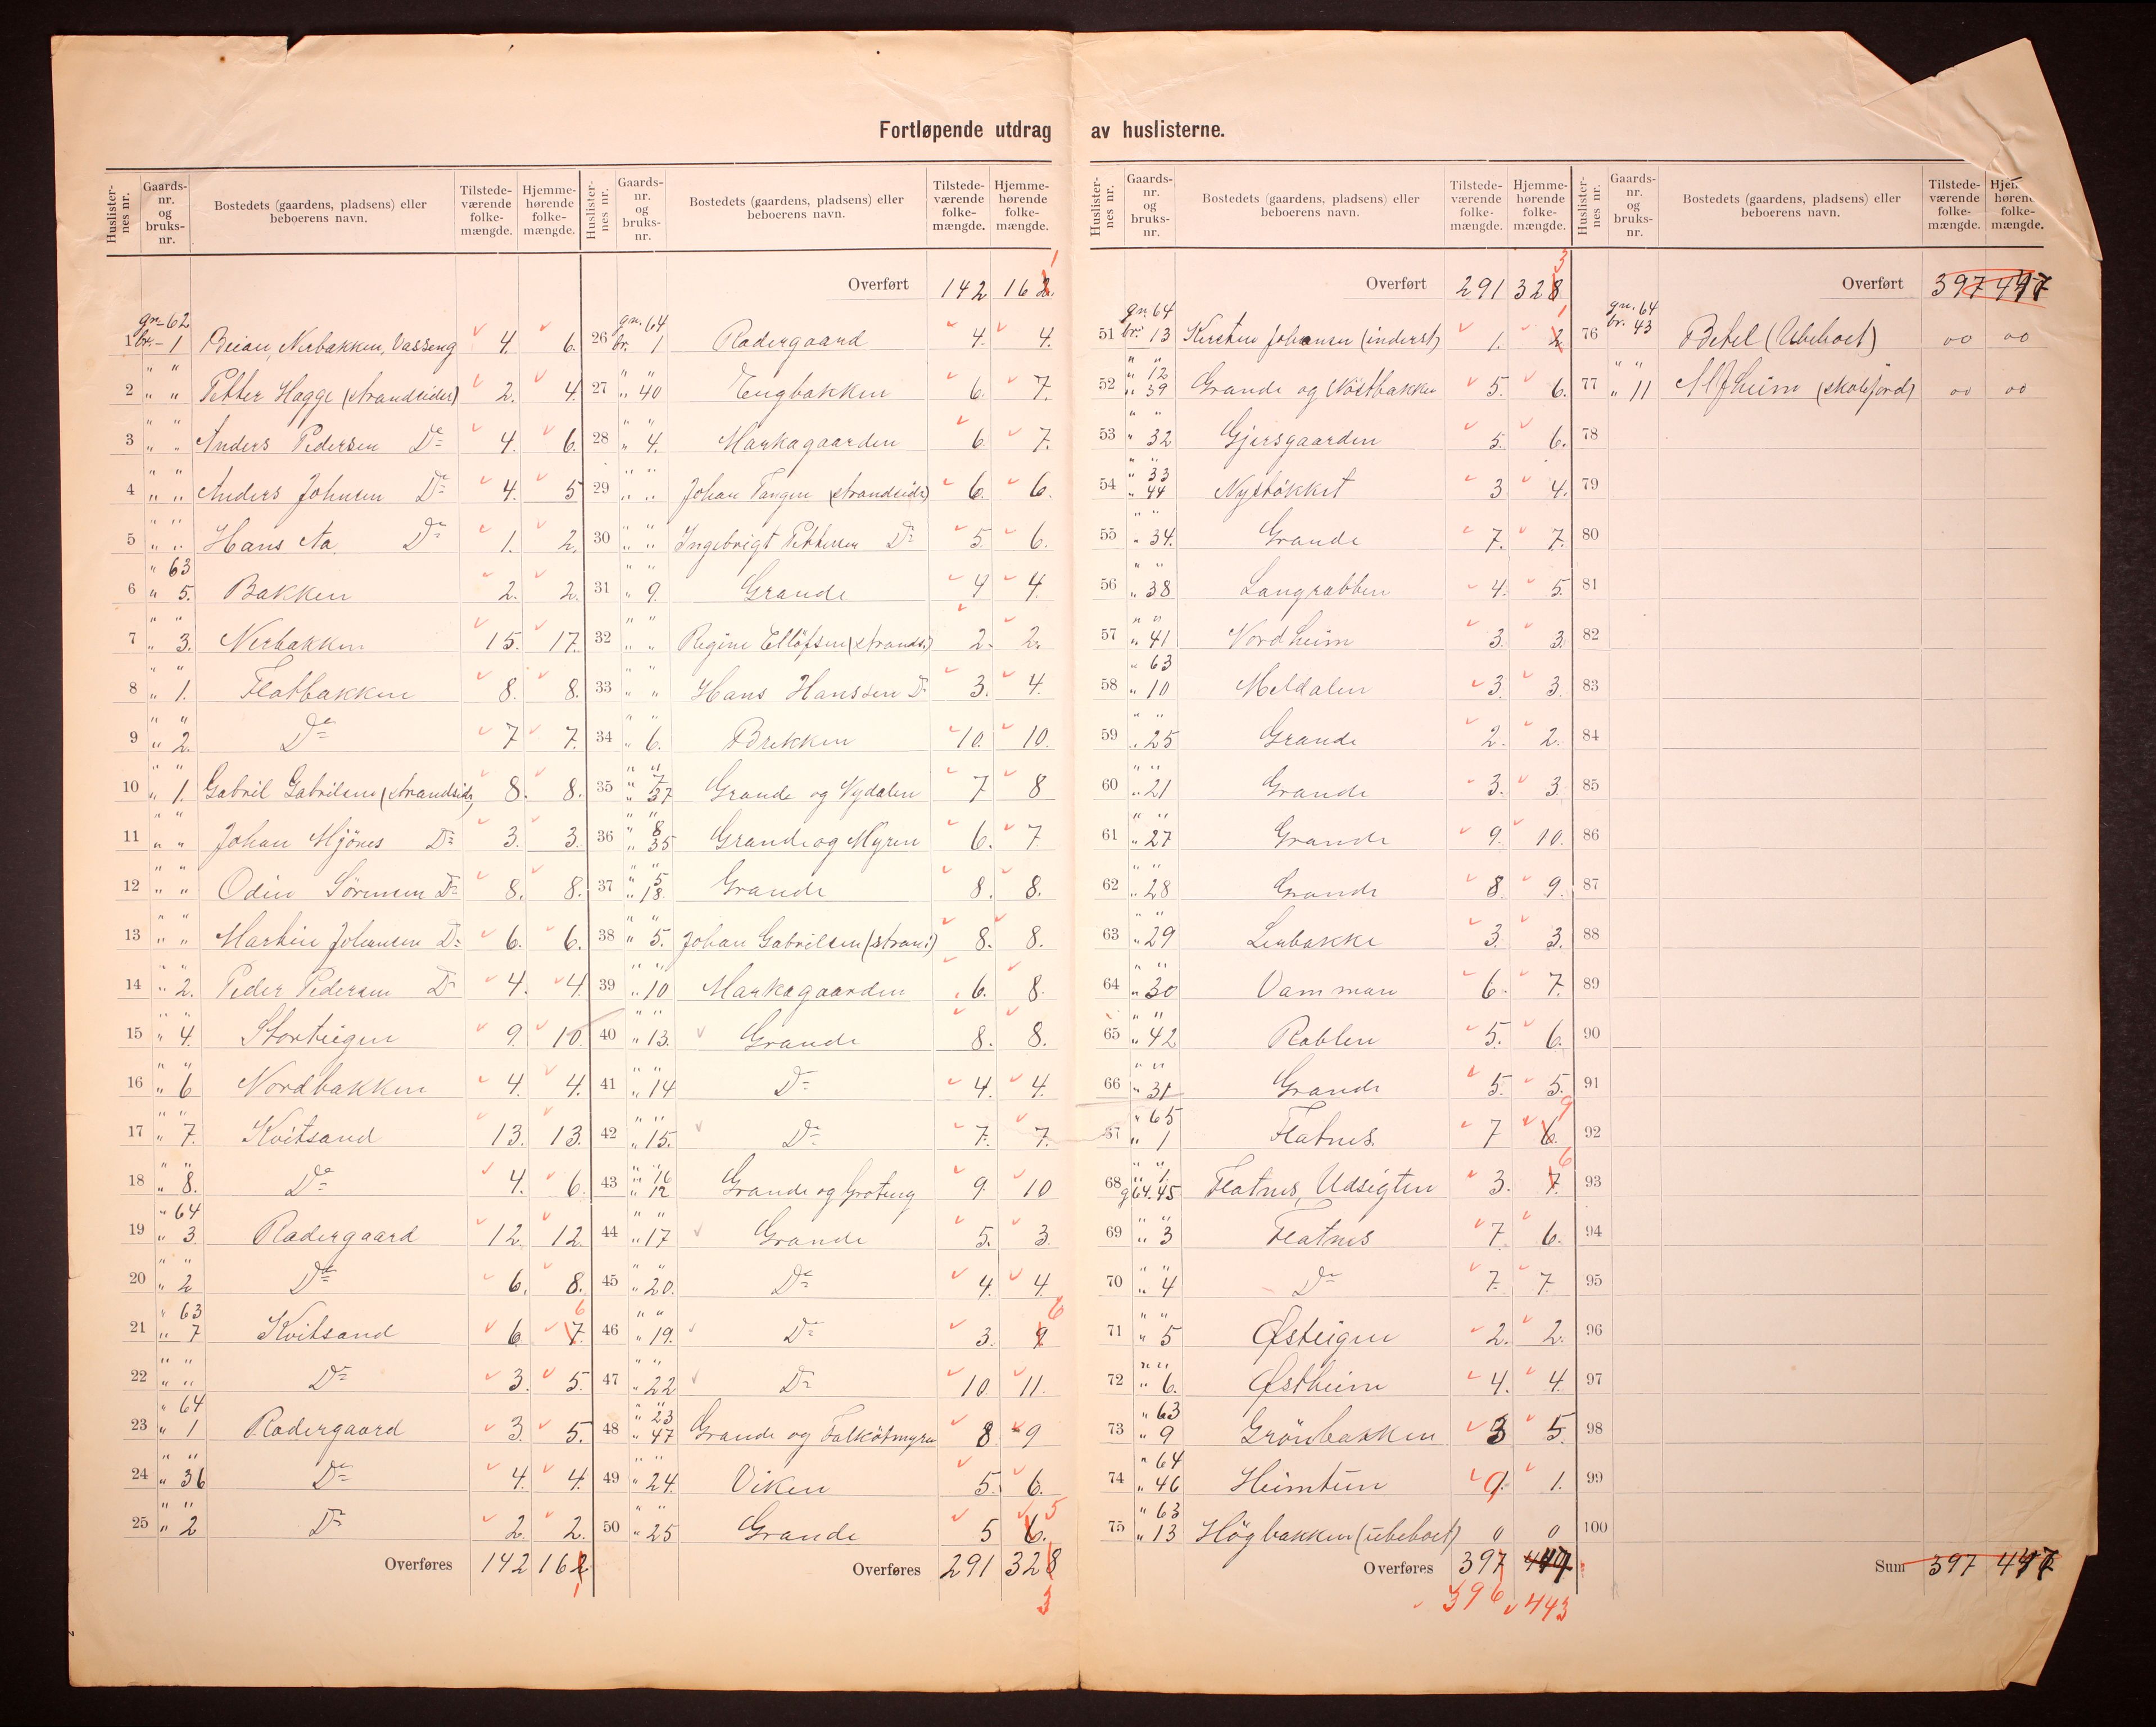 Fortløpende utdrag av huslisterne.
Huslisternes nr. Gaards-nr. og bruks-nr. Bostedets (gaardens, pladsens) eller beboerens navn. Tilstedeværende folkemængde. Hjemmehørende folkemængde.
gn. 62
1 br. 1 Beian, Nerbakken, Vasseng 4. 6.
2 " " Petter Hagge (strandsider) 2. 4.
3 " " Anders Pedersen Do 4. 6.
4 " " Anders Johnsen Do 4. 5
5 " " Hans Aa Do 1. 2.
" 63
6 " 5. Bakken 2. 2.
7 " 3. Nerbakken 15. 17.
8 " 1. Flatbakken 8. 8.
9 " 2. Do 7 7.
10 " 1. Gabril Gabrilsen (strandsid. 8. 8.
11 " " Johan Mjönes Do 3. 3.
12 " " Odin Sörensen Do 8. 8.
13 " " Martin Johansen Do 6. 6.
14 " 2. Peder Pedersen Do 4. 4.
15 " 4. Storteigen 9. 10.
16 " 6 Nordbakken 4. 4.
17 " 7. Kvitsand 13. 13.
18 " 8. Do 4. 6.
" 64
19 " 3 Radergaard 12. 12.
20 " 2 Do 6. 8.
" 63
21 " 7 Kvitsand 6. 7. 6
22 " " Do 3. 5.
" 64
23 " 1 Radergaard 3. 5.
24 " 36 Do 4. 4.
25 " 2 Do 2. 2.
Overføres 142 162
1
Huslisternes nr. Gaards-nr. og bruks-nr. Bostedets (gaardens, pladsens) eller beboerens navn. Tilstedeværende folkemængde. Hjemmehørende folkemængde.
Overført 142 162. 1
gn. 64
26 br. 1 Radergaard 4. 4.
27 " 40 Engbakken 6. 7.
28 " 4. Markagaarden 6. 7.
29 " " Johan Tangen (strandsid.) 6. 6.
30 " " Ingebrigt Pettersen Do 5. 6.
31 " 9. Grande 4 4.
32 " " Regine Ellefsen (strands.) 2. 2.
33 " " Hans Hanssen Do 3. 4.
34 " 6. Brekken 10. 10.
35 " 7 " 37 Grande og Nydalen 7 8
36 " 8 " 35 Grande og Myren 6. 7.
37 " 5 " 18. Grande 8. 8.
38 " 5. Johan Gabrilsen (strand.) 8. 8.
39 " 10 Markagaarden 6. 8.
40 " 13. Grande 8. 8.
41 " 14 Do 4. 4.
42 " 15. Do 7. 7.
43 " 16 " 12 Grande og Groteng 9. 10
44 " 17 Grande 5. 3.
45 " 20. Do 4. 4.
46 " 19. Do 3. 9 6
47 " 22 Do 10. 11.
48 " 23 " 47 Grande og Falkötmyren 8 9
49 " 24. Viken 5. 6.
50 " 25 Grande 5 6. 5
Overføres 291 328
3
Huslisternes nr. Gaards-nr. og bruks-nr. Bostedets (gaardens, pladsens) eller beboerens navn. Tilstedeværende folkemængde. Hjemmehørende folkemængde.
Overført 291 328 3
gn. 64
51 br. 13 Kirsten Johansen (inderst) 1. 2. 1
52 " 12 " 39 Grande og Nöstbakken 5. 6.
53 " 32 Gjersgaarden 5. 6.
54 " 33 " 44 Nystökket 3. 4.
55 " 34. Grande 7. 7.
56 " 38 Langrabben 4. 5.
57 " 41 Nordheim 3. 3.
" 63
58 " 10 Meldalen 3. 3.
59 " 25 Grande 2. 2.
60 " 21 Grande 3. 3.
61 " 27 Grande 9. 10.
62 " 28 Grande 8. 9.
63 " 29 Leubakke 3. 3.
64 " 30 Vamman 6. 7.
65 " 42 Rabben 5. 6.
66 " 31 Grande 5. 5.
" 65
67 " 1 Flatnes. 7 6. 9
68 " 1. g 64. 45 Flatnes, Udsigten 3. 7. 6
69 " 3 Flatnes 7. 6.
70 " 4 Do 7. 7.
71 " 5 Østeigen 2. 2.
72 " 6. Østheim 4. 4.
" 63
73 " 9 Grönbakken 3 5.
" 64
74 " 46 Heimtun 1.
" 63
75 " 13 Högbakken (ubeboet) 0 0
Overføres 397 447
396 443
Huslisternes nr. Gaards-nr. og bruks-nr. Bostedets (gaardens, pladsens) eller beboerens navn. Tilstedeværende folkemængde. Hjemmehørende folkemængde.
Overført 397 447
gn. 64
76 br. 43 Betel (Ubeboet) 00 00
77 " 11 Alfheim (skolejord) 00 00
78
79
80
81
82
83
84
85
86
87
88
89
90
91
92
93
94
95
96
97
98
99
100
Sum 397 447